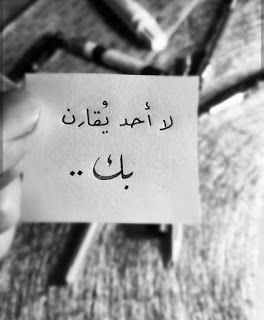 لا أحد يُقارِن
بك ..